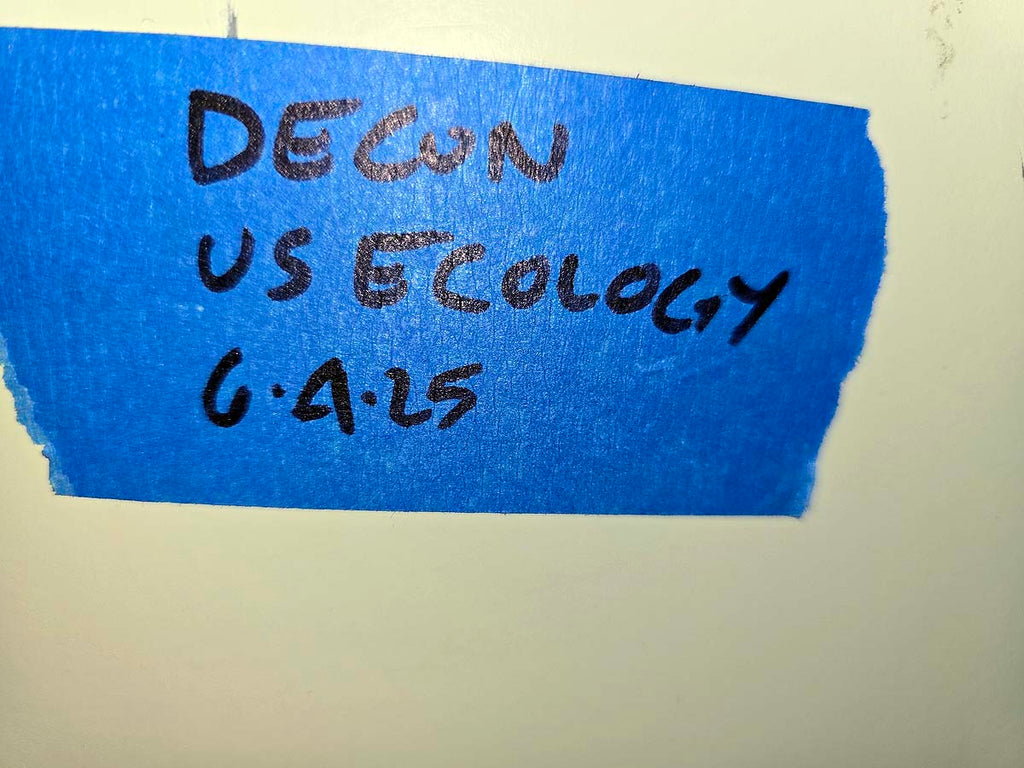 DECON
US ECOLOGY
6.4.25